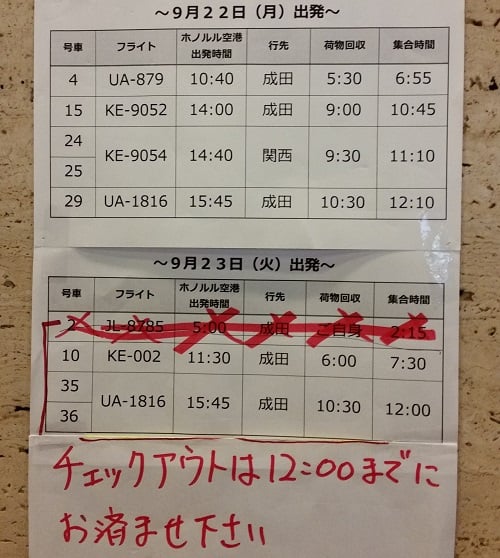 ～９月２２日（月）出発～
号車 フライト ホノルル空港出発時間 行先 荷物回収 集合時間
4 UA-879 10:40 成田 5:30 6:55
15 KE-9052 14:00 成田 9:00 10:45
24 25 KE-9054 14:40 関西 9:30 11:10
29 UA-1816 15:45 成田 10:30 12:10
～９月２３日（火）出発～
号車 フライト ホノルル空港出発時間 行先 荷物回収 集合時間
2 JL-8785 5:00 成田 ご自身 2:15
10 KE-002 11:30 成田 6:00 7:30
35 36 UA-1816 15:45 成田 10:30 12:00
チェックアウトは12:00までに
お済ませ下さい